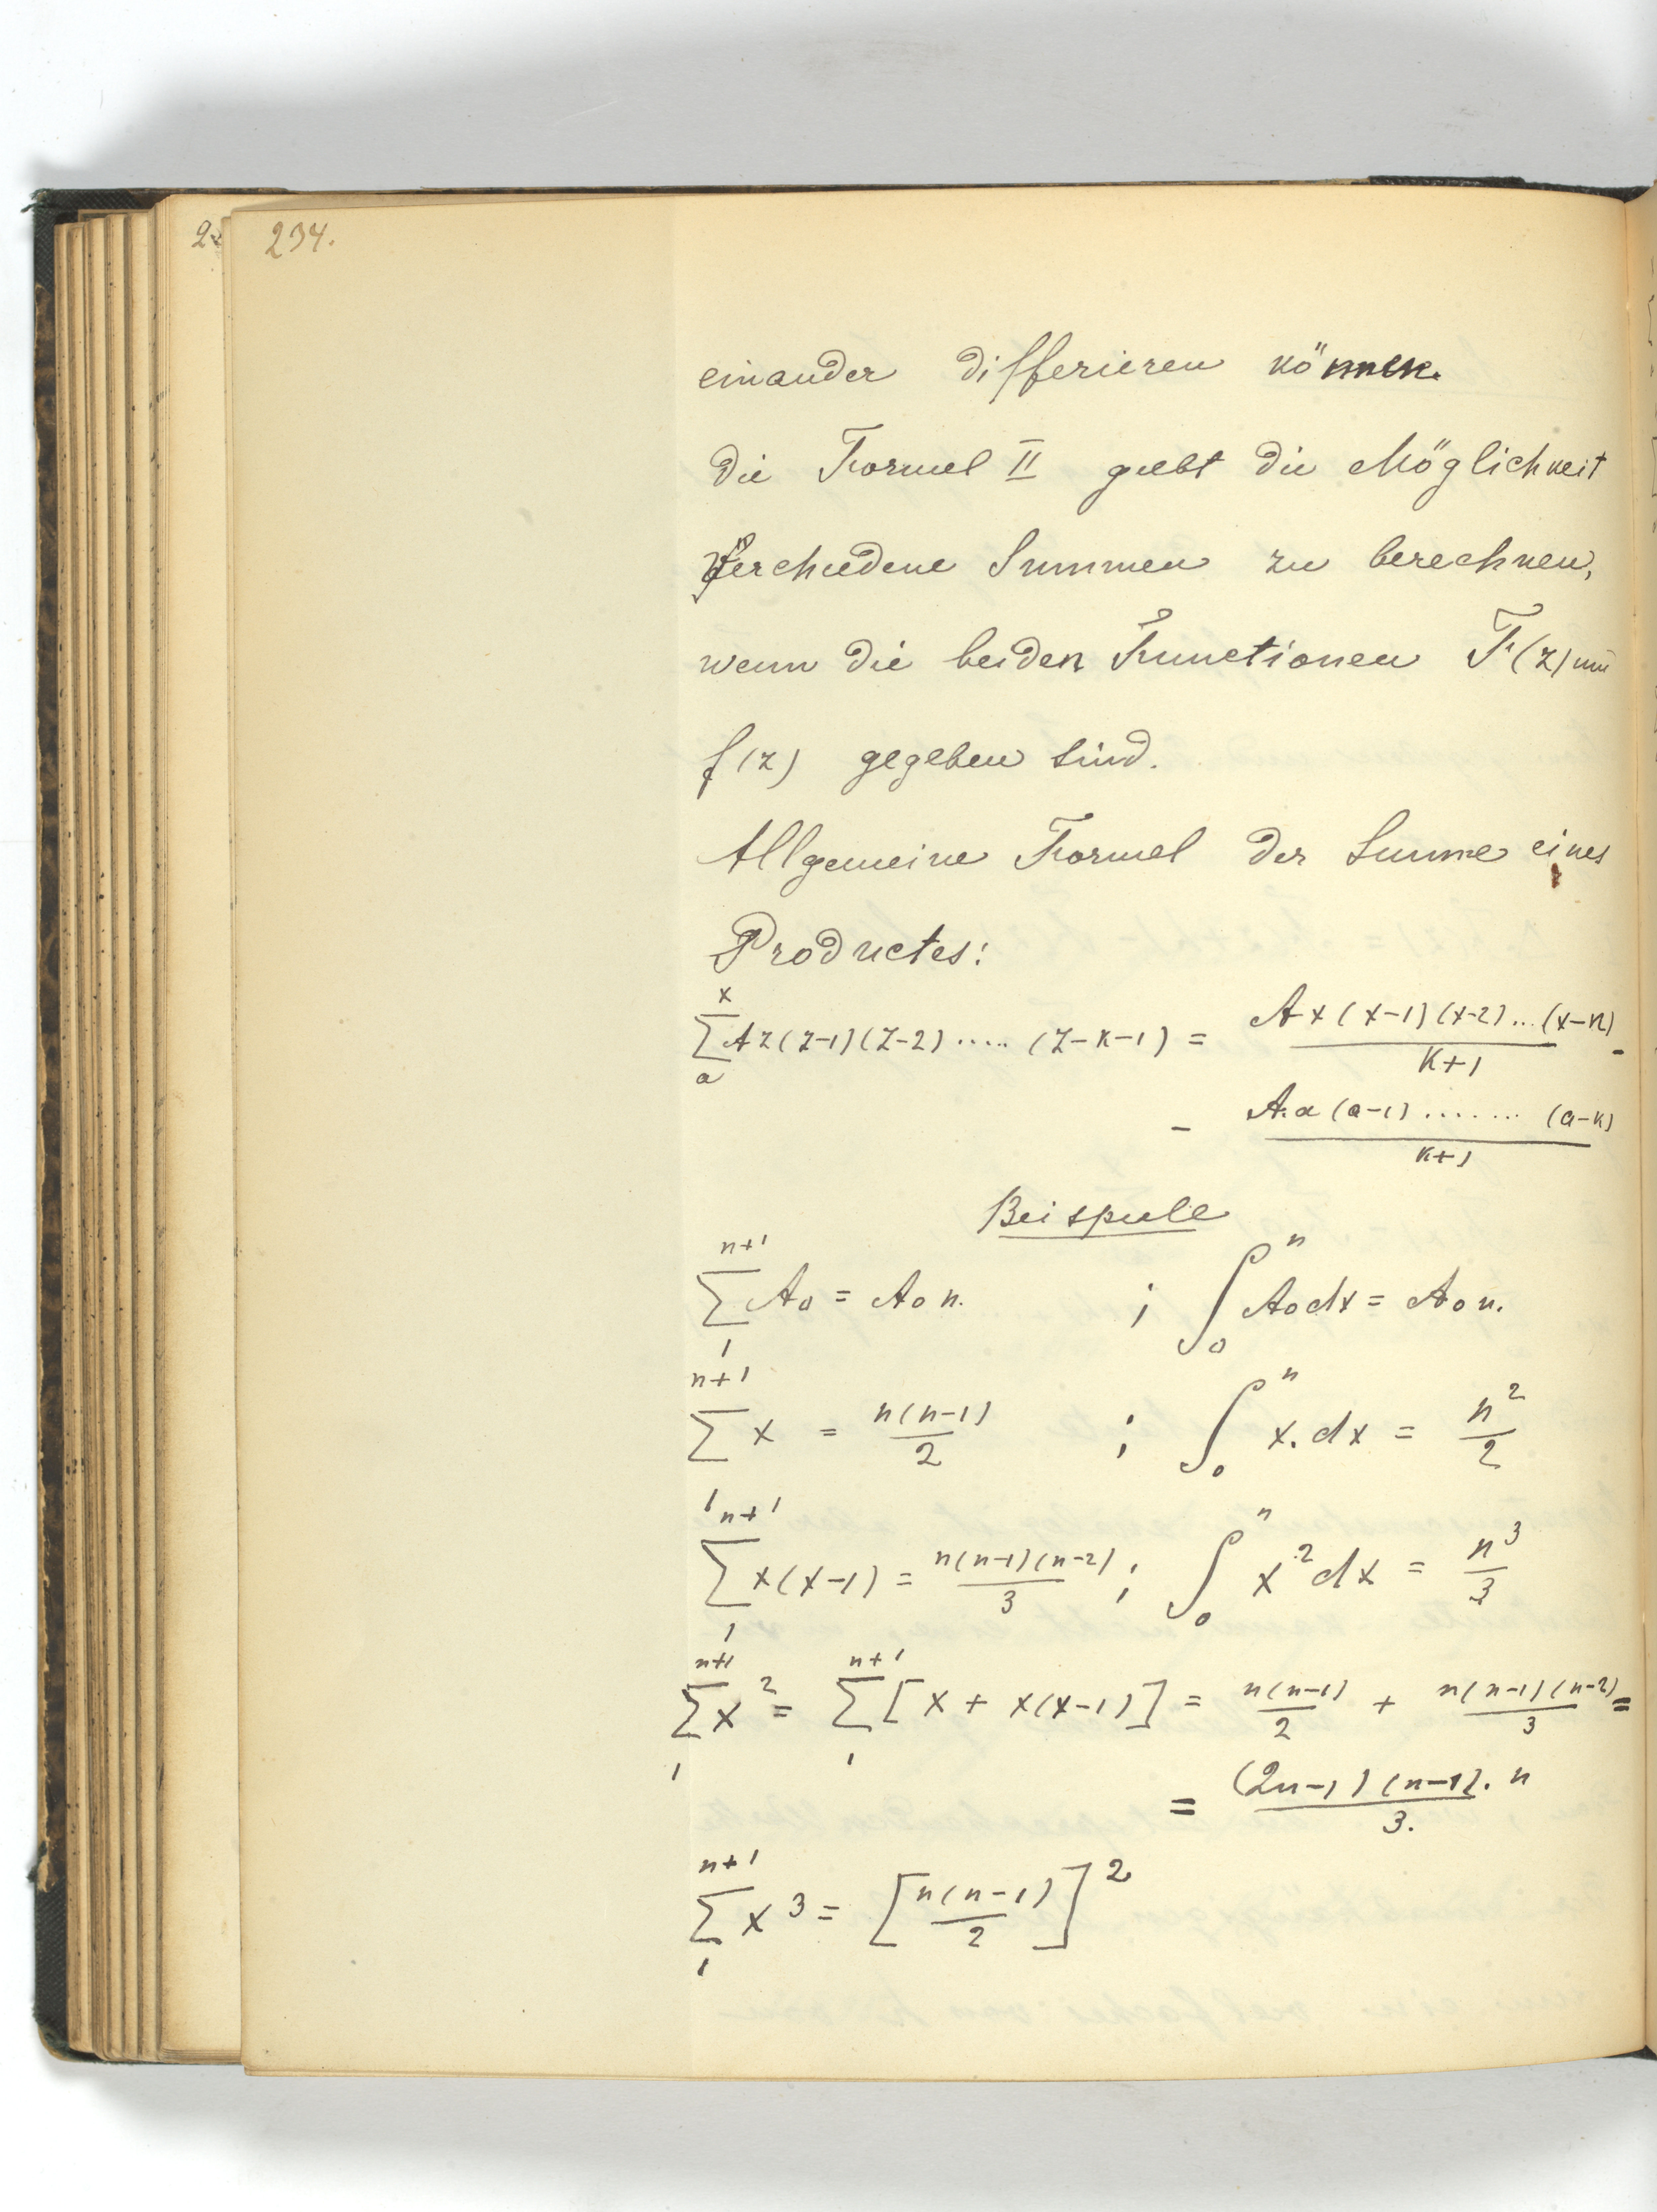 234.
einander differieren können.
die Formel II giebt die Möglichkeit
verschiedene Summen zu berechnen,
wenn die beiden Functionen F(z) und
f(z) gegeben sind.
Allgemeine Formel der Summe eines
Productes:
\sum_{a}^{x} A z(z-1)(z-2).....(z-k-1) = \frac{A x(x-1)(x-2)...(x-k)}{k+1} -
- \frac{A.a(a-1).......(a-k)}{k+1}
Beispiele
\sum_{1}^{n+1} A_0 = A_0 n. ; \int_0^n A_0 dx = A_0 n.
\sum_{1}^{n+1} x = \frac{n(n-1)}{2} ; \int_0^n x.dx = \frac{n^2}{2}
\sum_{1}^{n+1} x(x-1) = \frac{n(n-1)(n-2)}{3} ; \int_0^n x^2 dx = \frac{n^3}{3}
\sum_{1}^{n+1} x^2 = \sum_{1}^{n+1} [x + x(x-1)] = \frac{n(n-1)}{2} + \frac{n(n-1)(n-2)}{3} =
= \frac{(2n-1)(n-1).n}{3.}
\sum_{1}^{n+1} x^3 = [\frac{n(n-1)}{2}]^2